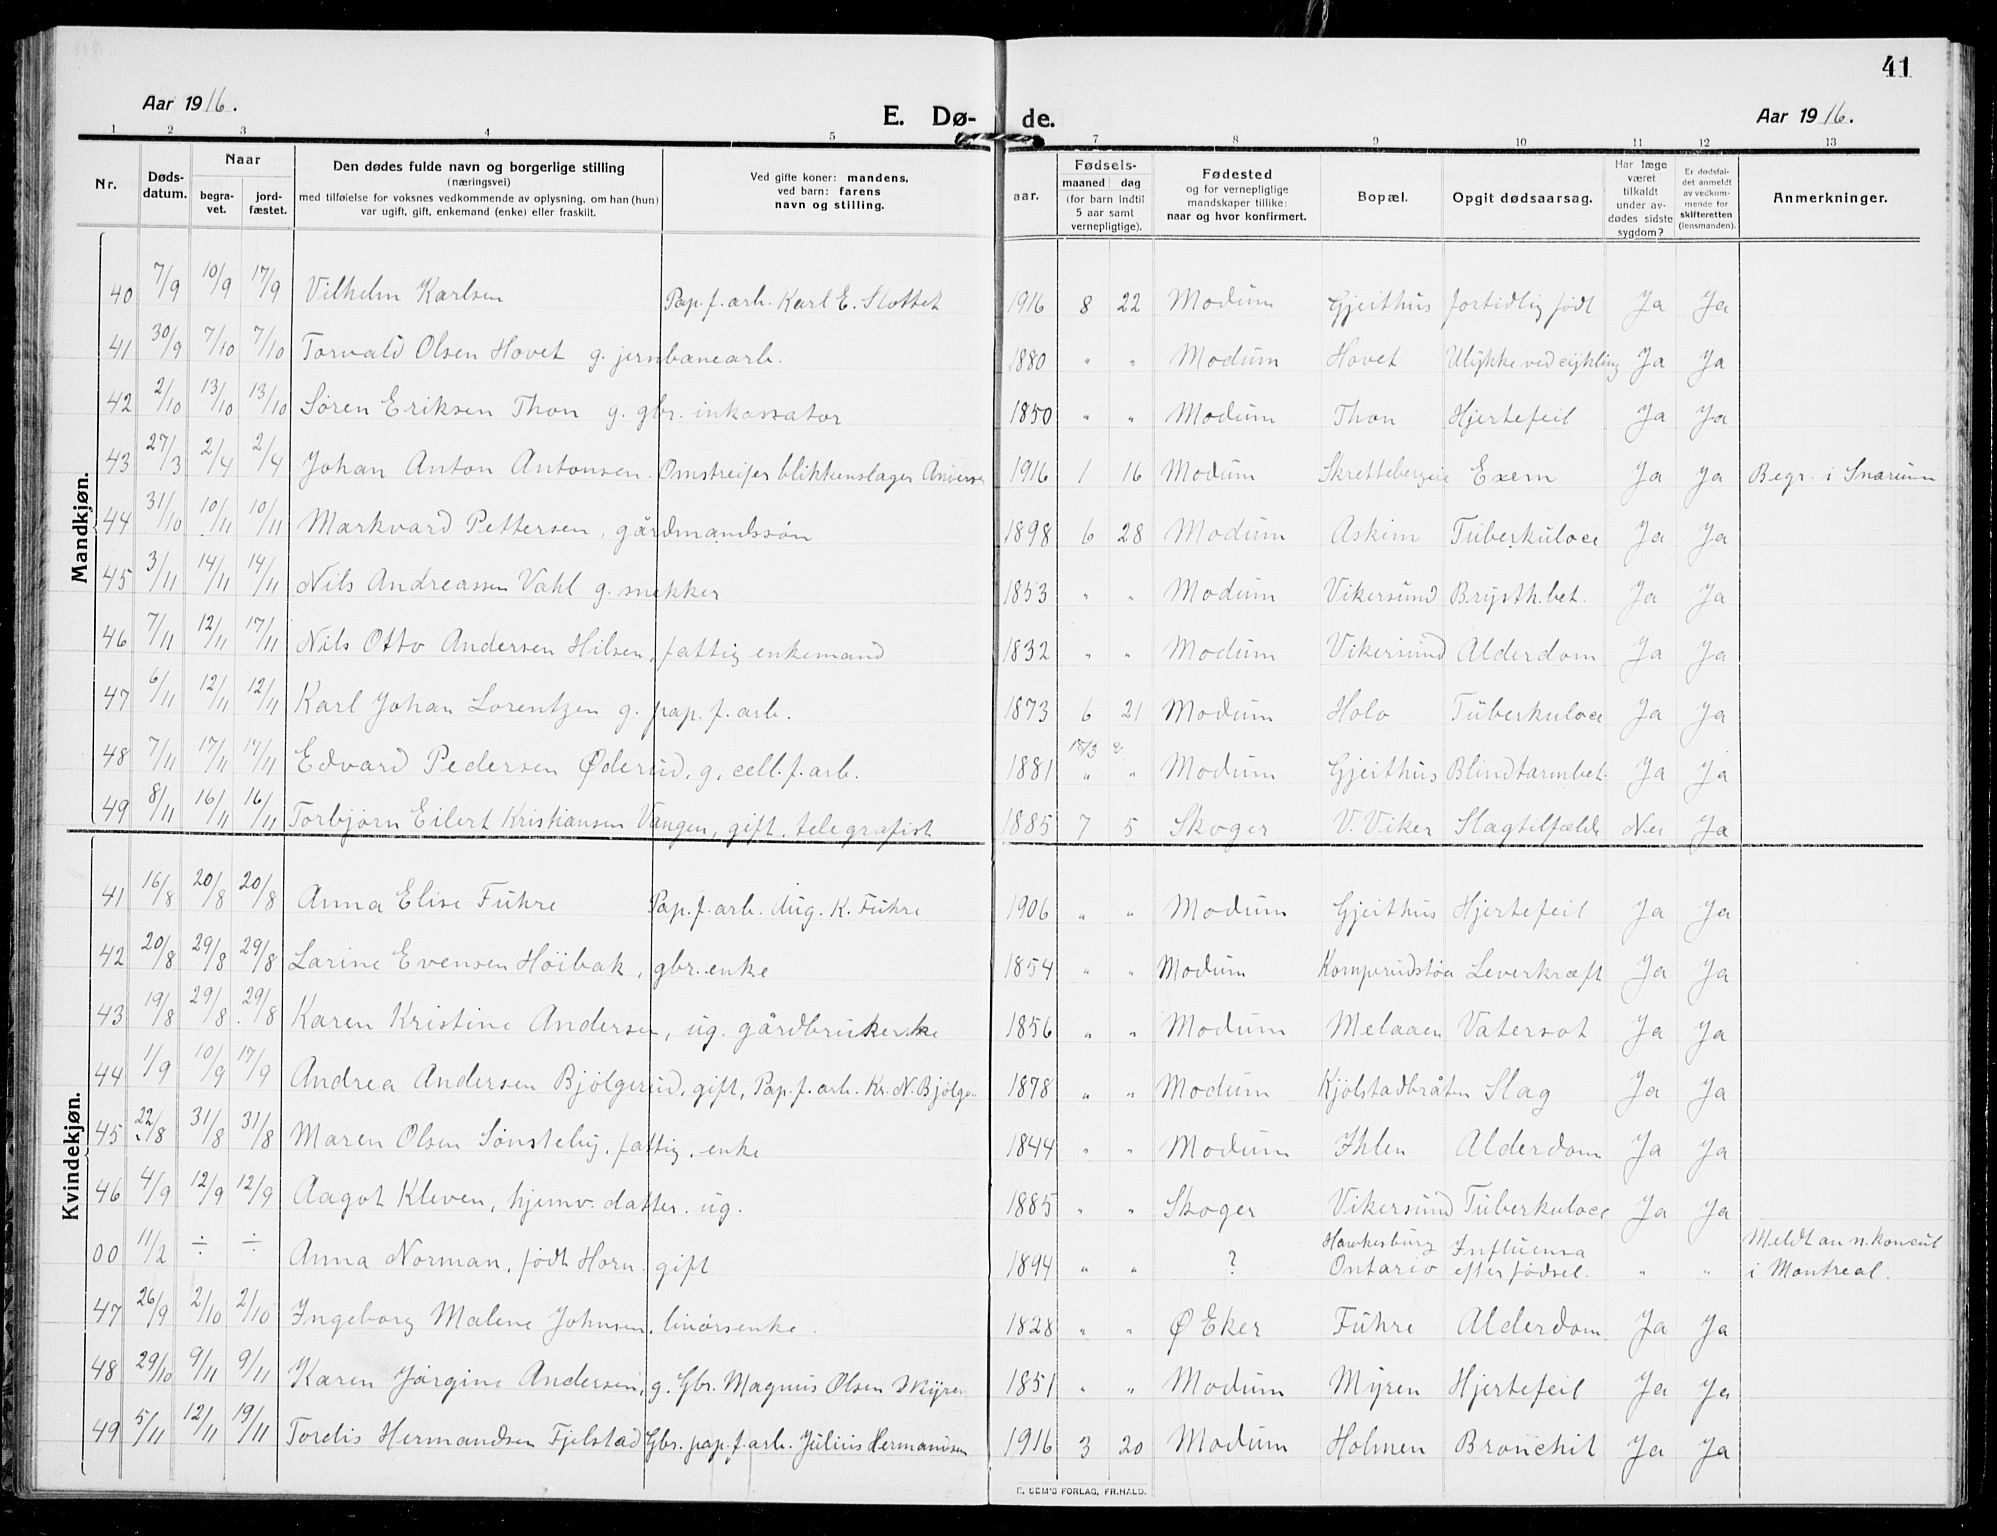 41
Aar 1916. E. Dø- de. Aar 1916.
1 2 3 4 5 7 8 9 10 11 12 13
Nr. Dødsdatum. Naar begravet. jordfæstet. Den dødes fulde navn og borgerlige stilling (næringsvei) med tilføielse for voksnes vedkommende av oplysning, om han (hun) var ugift, gift, enkemand (enke) eller fraskilt. Ved gifte koner: mandens, ved barn: farens navn og stilling. aar. Fødsels- maaned dag (for barn indtil 5 aar samt vernepligtige). Fødested og for vernepligtige mandskaper tillike: naar og hvor konfirmert. Bopæl. Opgit dødsaarsag. Har læge været tilkaldt under avdødes sidste sygdom? Er dødsfaldet anmeldt av vedkommende for skifteretten (lensmanden). Anmerkninger.
Mandkjøn.
40 7/9 10/9 17/9 Vilhelm Karlsen Pap. f. arb. Karl E. Slottet 1916 8 22 Modum Gjeithus fortidlig født Ja Ja
41 30/9 7/10 7/10 Torvald Olsen Hovet g. jernbanearb. 1880 " " Modum Hovet Ulykke ved cykling Ja Ja
42 2/10 13/10 13/10 Søren Eriksen Thon g. gbr. inkassator 1850 " " Modum Thon Hjertefeil Ja Ja
43 27/3 2/4 2/4 Johan Anton Antonsen. Omstreifer blikkenslager 1916 1 16 Modum Exem Ja Ja Begr. i Snarum
44 31/10 10/11 10/11 Markvard Pettersen, gårdmandssøn 1898 6 28 Modum Askim Tuberkuloce Ja Ja
45 3/11 14/11 14/11 Nils Andreassen Vahl g. snekker 1853 " " Modum Vikersund Brysth.bet. Ja Ja
46 7/11 12/11 17/11 Nils Otto Andersen Hilsen, fattig enkemand 1832 " " Modum Vikersund Alderdom Ja Ja
47 6/11 12/11 12/11 Karl Johan Lorentzen g. pap. f. arb. 1873 6 21 Modum Holo Tuberkuloce Ja Ja
48 7/11 17/11 17/11 Edvard Pedersen Øderud, g, cell. f. arb. 1881 18/3 " " Modum Gjeithus Blindtarmbet. Ja Ja
49 8/11 16/11 16/11 Torbjørn Eilert Kristiansen Vangen, gift, telegrafist 1885 7 5 Skoger V. Viker Slagtilfælde Nei Ja
Kvindekjøn.
41 16/8 20/8 20/8 Anna Elise Fuhre Pap. f. arb. Aug. K. Fuhre 1906 " " Modum Gjeithus Hjertefeil Ja Ja
42 20/8 29/8 29/8 Larine Evensen Høibak, gbr. enke 1854 " " Modum Leverkræft Ja Ja
43 19/8 29/8 29/8 Karen Kristine Andersen, ug. gårdbrukerske 1856 " " Modum Melaaen Vatersot Ja Ja
44 1/9 10/9 17/9 Andrea Andersen Bjølgerud, gift, Pap. f. arb. Kr. N. Bjølger 1878 " " Modum Kjølstadbråten Slag Ja Ja
45 22/8 31/8 31/8 Maren Olsen Sønsteby, fattig. enke 1844 " " Modum Ihlen Alderdom Ja Ja
46 4/9 12/9 12/9 Aagot Kleven, hjemv. datter. ug. 1885 " " Skoger Vikersund Tuberkuloce Ja Ja
00 11/2 ÷ ÷ Anna Norman, født Horn gift 1894 " " ? Hawkesburg Ontario Influensa efter fødsel. " " Meldt av n. konsul i Montreal.
47 26/9 2/10 2/10 Ingeborg Malene Johnsen. linørsenke. 1828 " " Ø Eker Fuhre Alderdom Ja Ja
48 29/10 9/11 9/11 Karen Jørgine Andersen, g. Gbr. Magnus Olsen Myren 1851 " " Modum Myren Hjertefeil Ja Ja
49 5/11 12/11 19/11 Tordis Hermandsen Fjelstad Gbr. pap. f. arb. Julius Hermandsen 1916 3 20 Modum Holmen Bronchit Ja Ja
E. SEM'S FORLAG, FR.HALD.